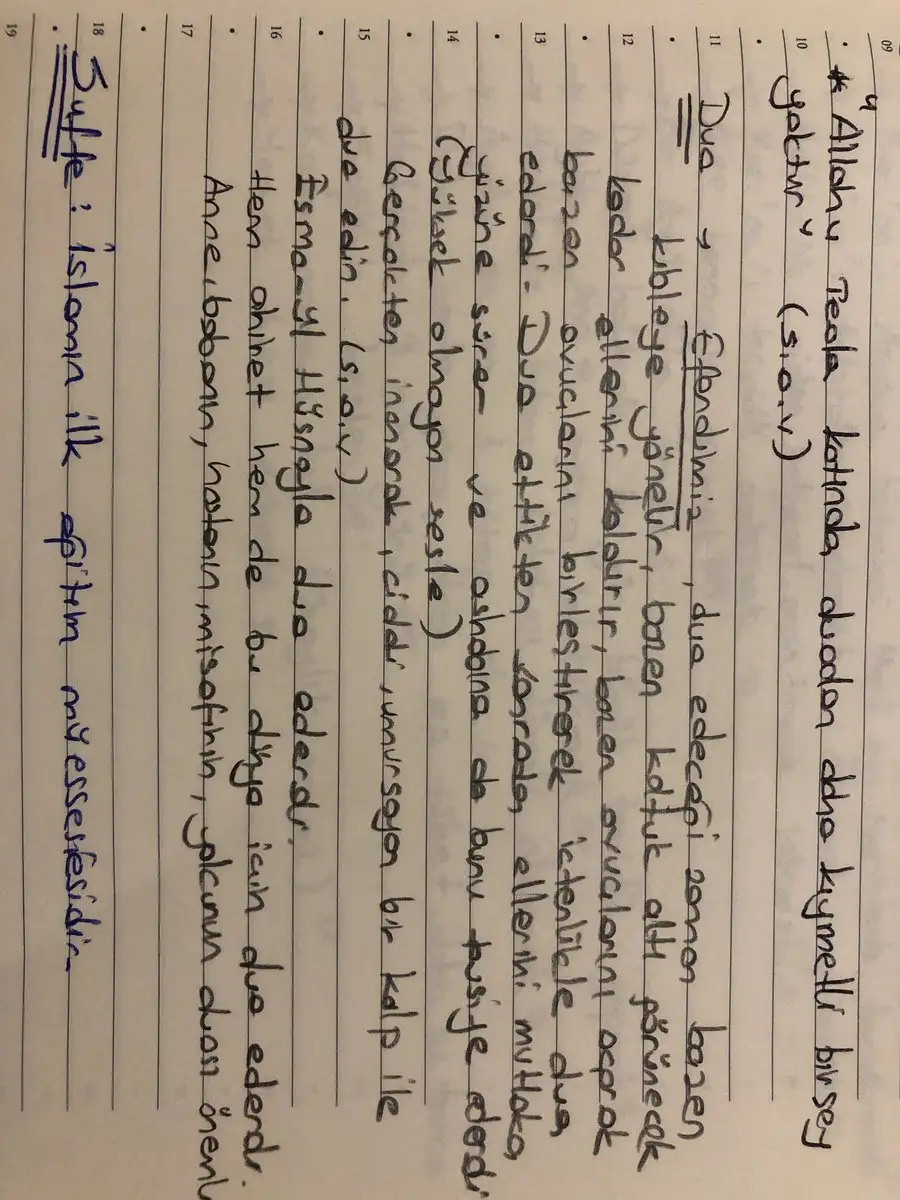 09
* "Allahu Teala katında duadan daha kıymetli birşey
10
yoktur" (s.a.v)
11
Dua → Efendimiz, dua edeceği zaman bazen
kıbleye yönelir, bazen koltuk altı görünecek
12
kadar ellerini kaldırır, bazen avuçlarını açarak
bazen avuçlarını birleştirerek içtenlikle dua
13
ederdi. Dua ettikten sonrada ellerini mutlaka
yüzüne sürer ve ashabına da bunu tavsiye ederdi
14
(Yüksek olmayan sesle)
Gerçekten inanarak, ciddi, umursayan bir kalp ile
15
dua edin. (s.a.v)
Esma-yl Hüsnayla dua ederdi.
16
Hem ahiret hem de bu dünya için dua ederdi.
Anne, babanın, hastanın, misafirin, yolcunun duası önemli
17
18
Suffe: İslamın ilk eğitim müessesesidir.
19